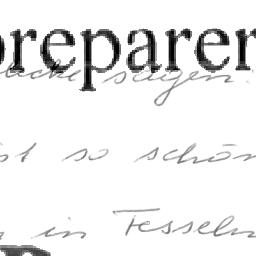 preparer
sagen.
ist so schön
in Fesseln